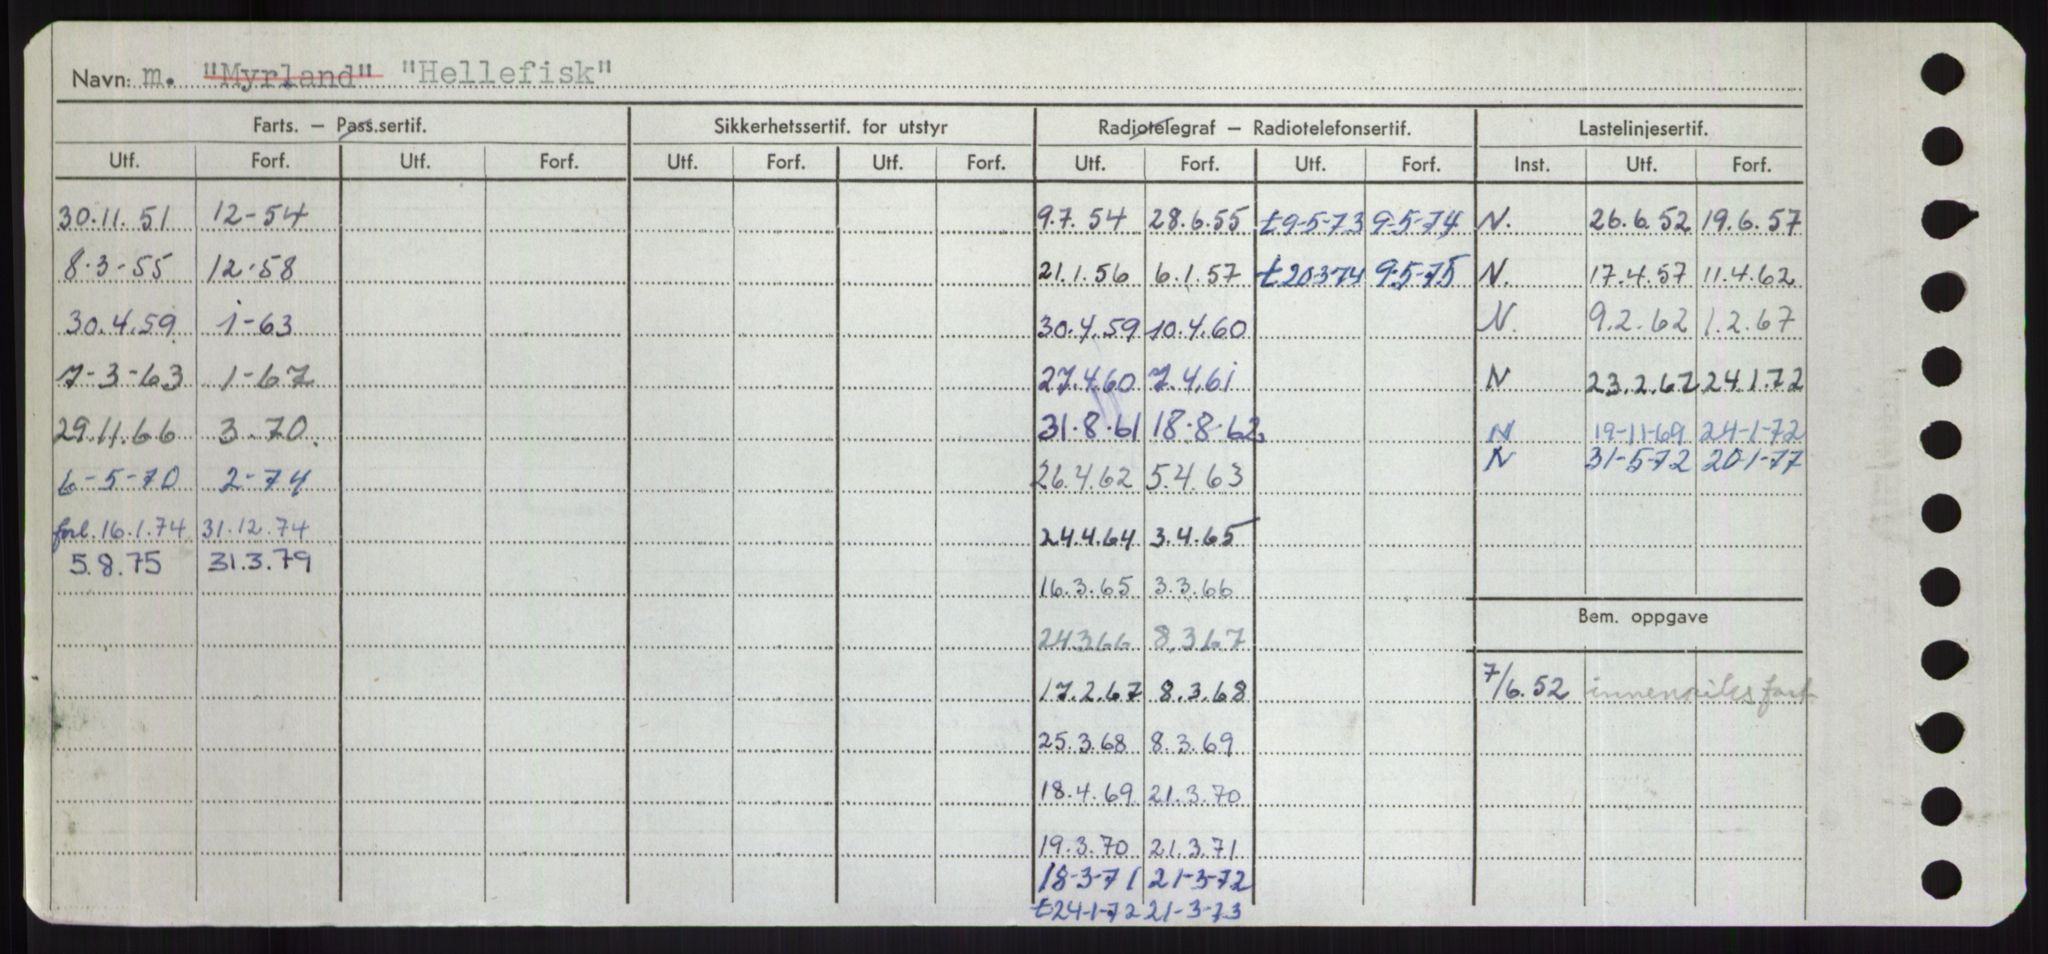 Navn: m. "Myrland" "Hellefisk"
Farts. – Pass.sertif. Sikkerhetssertif. for utstyr Radiotelegraf – Radiotelefonsertif. Lastelinjesertif.
Utf. Forf. Utf. Forf. Utf. Forf. Utf. Forf. Utf. Forf. Utf. Forf. Inst. Utf. Forf.
30.11.51 12-54 9.7.54 28.6.55 t 9-5-73 9-5-74 N. 26.6.52 19.6.57
8-3-55 12-58 21.1.56 6.1.57 t 20374 9-5-75 N. 17.4.57 11.4.62
30.4.59 1-63 30.4.59 10.4.60 N. 9.2.62 1.2.67
7-3-63 1-67 27.4.60 7.4.61 N 23.2.67 24.1.72
29.11.66 3.70. 31.8.61 18-8-62 N 19-11-69 24-1-72
6-5-70 2-74 26.4.62 5.4.63 N 31-5-72 20-1-77
forl. 16.1.74 31.12.74 24.4.64 3.4.65
5.8.75 31.3.79
16.3.65 3.3.66
Bem. oppgave
24366 8.367
17.2.67 8.3.68 7/6.52 innenriks fart
25.3.68 8.3.69
18.4.69 21.3.70
19.3.70 21.3.71
18-3-71 21-3-72
t 24-1-72 21-3-73